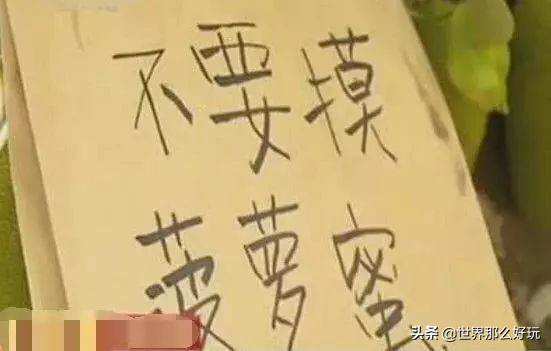 不要摸
菠萝蜜
头条 @世界那么好玩